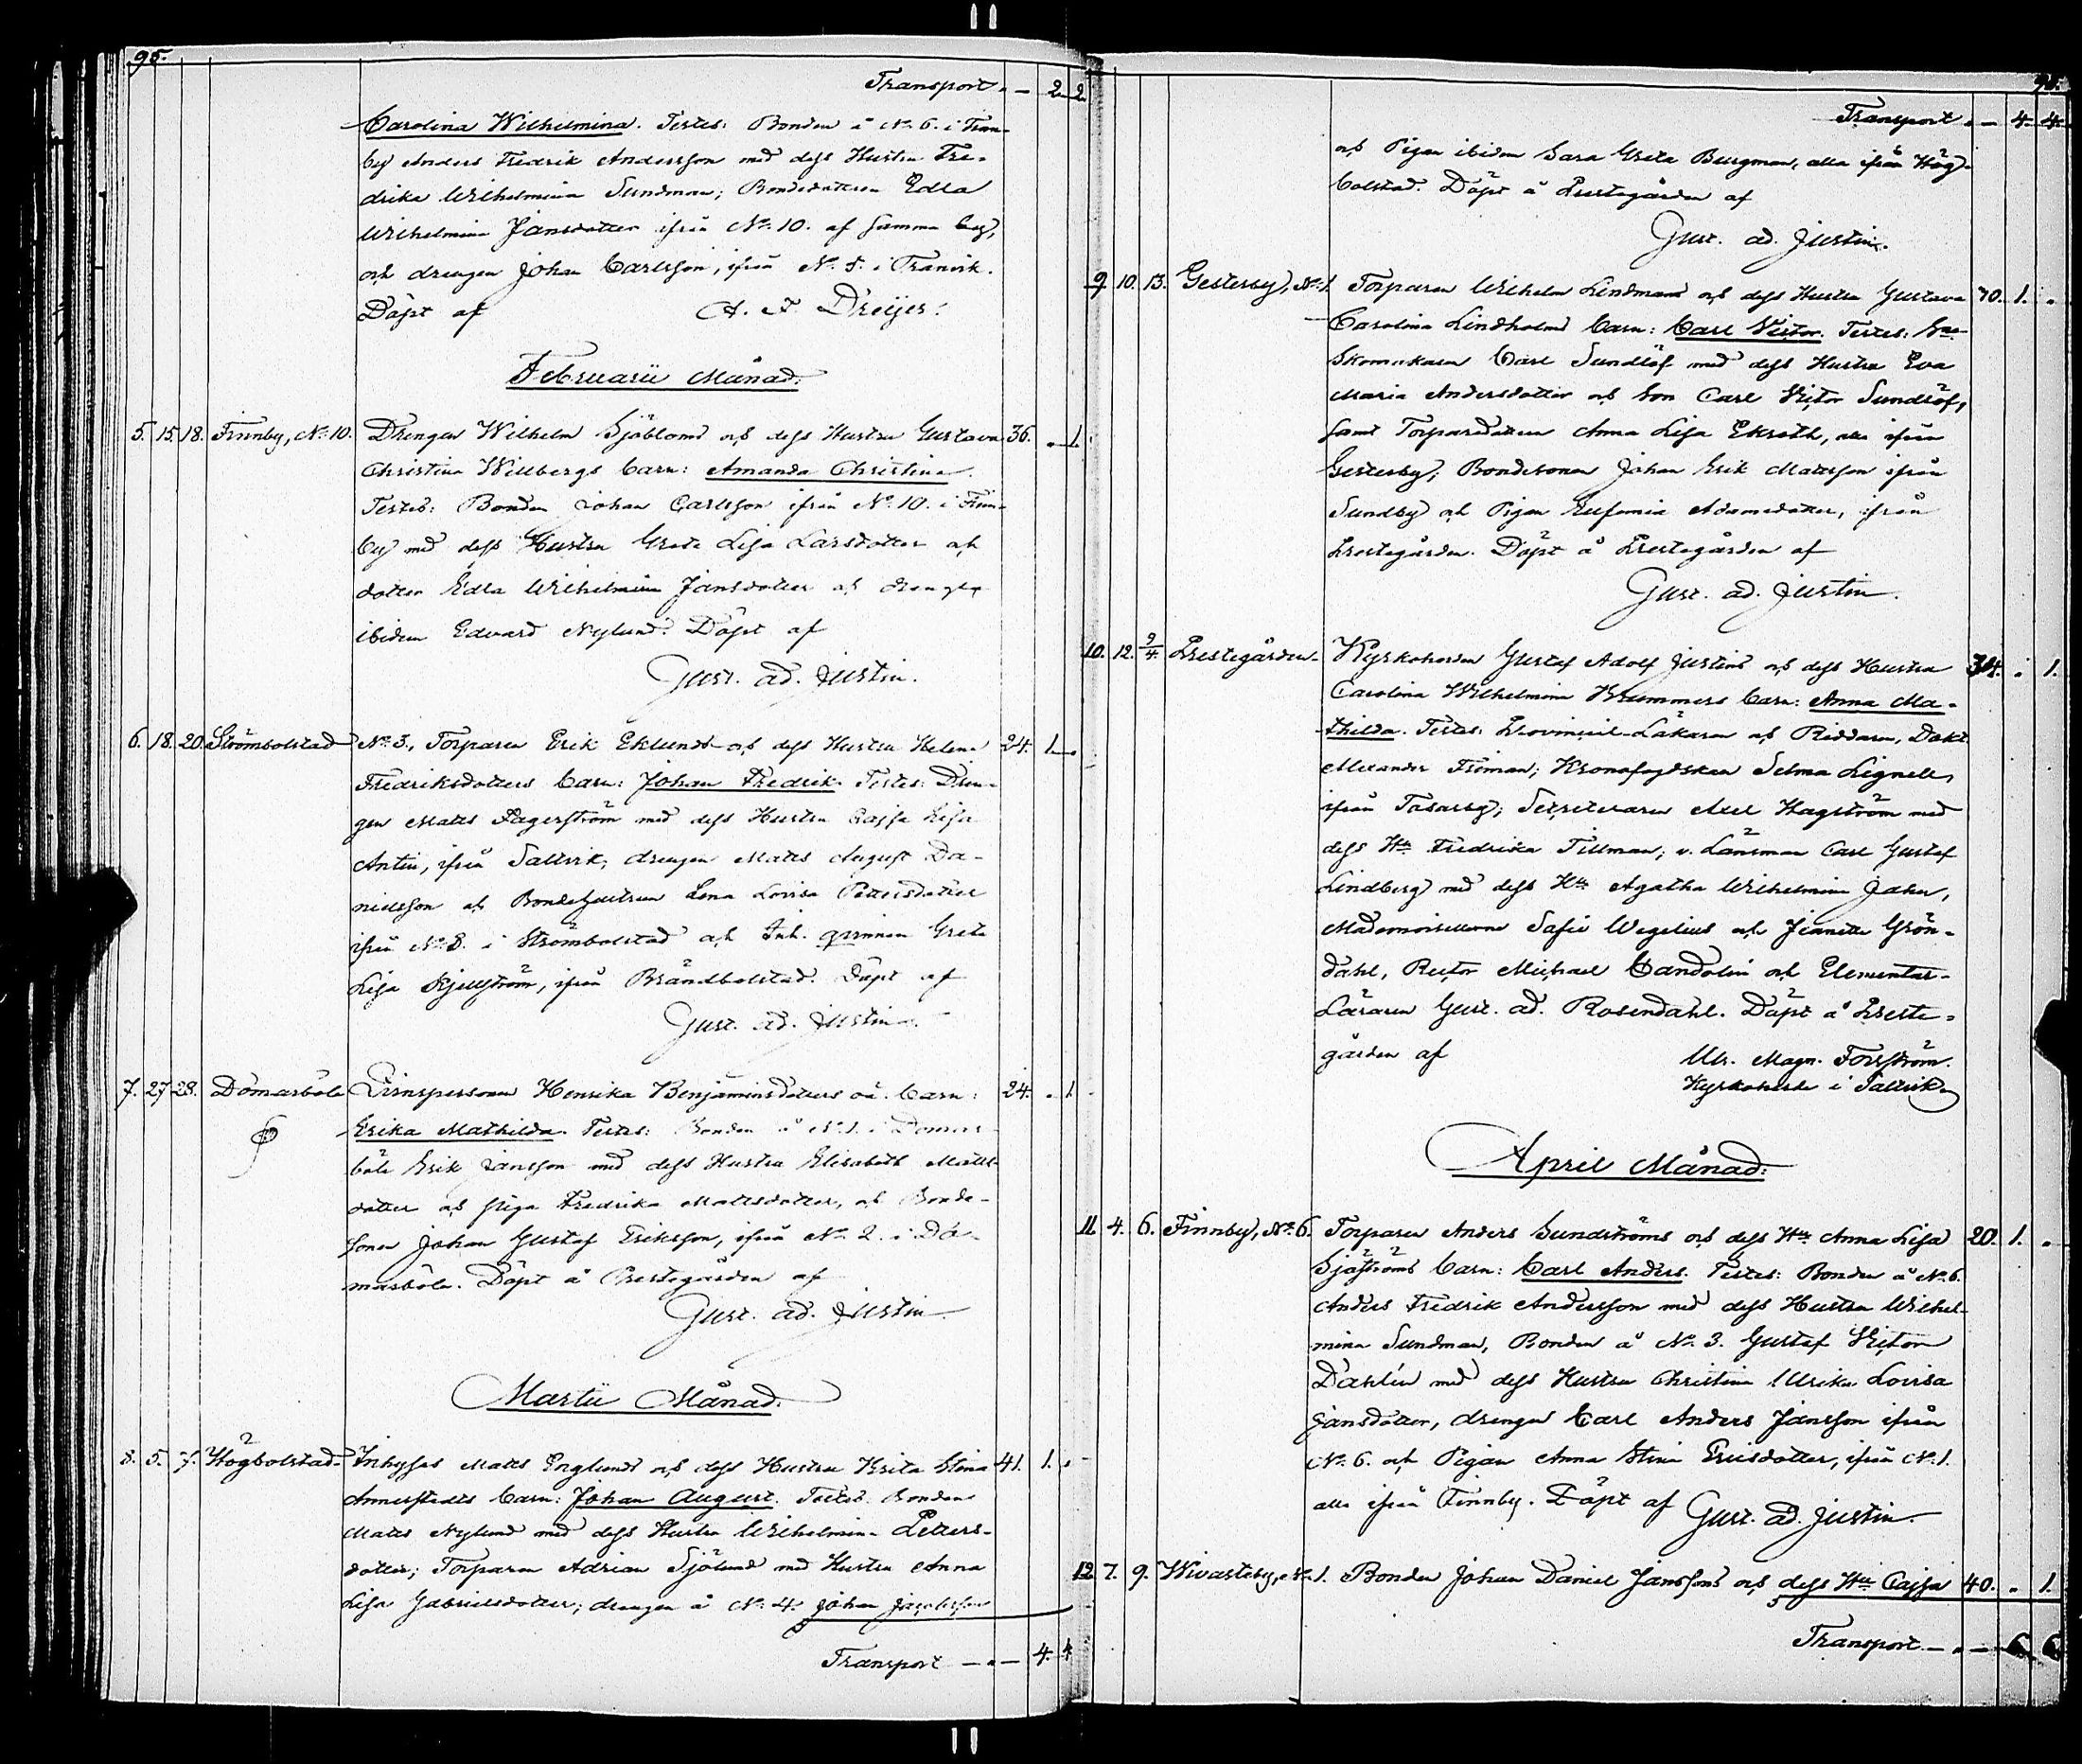 95.
Transport - 2. 2.
Carolina Wilhelmina. Testes: Bonden å No 6. i Finn-
by Anders Fredrik Andersson med dess Hustru Fre-
drika Wilhelmina Sundman; Bondedottren Edla
Wilhelmina Jansdotter ifrån No 10. af samma by,
och drengen Johan Carlsson, ifrån No 5. i Tranvik.
Döpt af A. F. Dreijer.
Februarii Månad.
5. 15. 18. Finnby, No 10. Drengen Wilhelm Sjöbloms och dess Hustru Gustava 36. . 1.
Christina Willbergs barn: Amanda Christina.
Testes: Bonden Johan Carlsson ifrån No 10. i Finn-
by med dess Hustru Greta Lisa Larsdotter och
dotter Edla Wilhelmina Jansdotter och drengen
ibidem Edvard Nylund. Döpt af
Gust. ad. Justin.
6. 18. 20. Strömbolstad No 3., Torparen Erik Eklunds och dess Hustru Helena 24. 1. .
Fredriksdotters barn: Johan Fredrik. Testes: Dren-
gen Matts Fagerström med dess Hustru Cajsa Lisa
Antin, ifrån Saltvik; drengen Matts August Da-
nielsson och Bondehustrun Lena Lovisa Pettersdotter
ifrån No 8. i Strömbolstad och Inh. qvinnan Greta
Lisa Kjellström, ifrån Brändbolstad. Döpt af
Gust. ad. Justin.
7. 27. 28. Domarböle Qvinspersonen Henrika Benjaminsdotters oä. barn: 24. . 1.
Erika Mathilda. Testes: Bonden å No 1. i Domar-
böle Erik Jansson med dess Hustru Elisabeth Matts-
dotter och piga Fredrika Mattsdotter, och Bonde-
sonen Johan Gustaf Eriksson, ifrån No 2. i Do-
marböle. Döpt å Prestegården af
Gust. ad. Justin.
Martii Månad.
8. 5. 7. Högbolstad. Inhyses Matts Englunds och dess Hustru Brita Stina 41. 1. .
Annerstedts barn: Johan August. Testes: Bonden
Matts Nylund med dess Hustru Wilhelmina Petters-
dotter; Torparen Adrian Sjölund med Hustru Anna
Lisa Gabrielsdotter; drengen å No 4. Johan Jacobsson
Transport - . - 4. 4.
Transport . - 4. 4.
och Pigan ibidem Sara Greta Bergman, alla ifrån Hög-
bolstad. Döpt å Prestegården af
Gust. ad. Justin.
9. 10. 13. Gesterby, No 1. Torparen Wilhelm Lindmans och dess Hustru Gustava 30. 1. .
Carolina Lindholms barn: Carl Victor. Testes:
Skomakaren Carl Sundlöf med dess Hustru Eva
Maria Andersdotter och Son Carl Victor Sundlöf,
samt Torparedottren Anna Lisa Ekroth, alla ifrån
Gesterby; Bondesonen Johan Erik Mattsson ifrån
Sundby och Pigan Eufemia Adamsdotter, ifrån
Prestegården. Döpt å Prestegården af
Gust. ad. Justin.
10. 12. 9/4. Prestegården. Kyrkoherden Gustaf Adolf Justins och dess Hustru 34. . 1.
Carolina Wilhelmina Krummers barn: Anna Ma-
thilda. Testes: Provincial-Läkaren och Riddaren, Dokt.
Alexander Fröman; Kronofogdskan Selma Lignell,
ifrån Tosarby; Secreteraren Axel Hagström med
dess Hu Fredrika Tillman; v. Länsman Carl Gustaf
Lindberg med dess Hu Agatha Wilhelmina
Mademoisellerna Sofie Wegelius och Jeanette Grön-
dahl, Rector Michael Candolin och Elementar-
Läraren Gust. ad. Rosendahl. Döpt å Preste-
gården af Ulr. Magn. Forsström.
Kyrkoherde i Saltvik
April Månad.
11. 4. 6. Finnby, No 6. Torparen Anders Sundströms och dess Hu Anna Lisa 20. 1. .
Sjöströms barn: Carl Anders. Testes: Bonden å No 6.
Anders Fredrik Andersson med dess Hustru Wilhel-
mina Sundman, Bonden å No 3. Gustaf Victor
Dahlén med dess Hustru Christina Ulrika Lovisa
Jansdotter, drengen Carl Anders Jansson ifrån
No 6. och Pigan Anna Stina Ericsdotter, ifrån No 1.
alla ifrån Finnby. Döpt af Gust. ad. Justin.
12. 7. 9. Wivasteby, No 1. Bonden Johan Daniel Janssons och dess Hu Cajsa 40. . 1.
Transport - . - 6. 6.